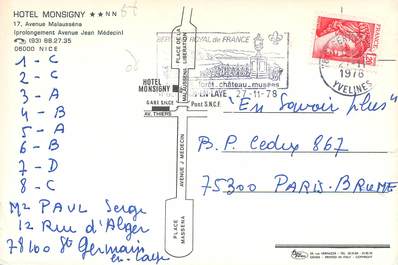 HOTEL MONSIGNY ★★NN
17, Avenue Malausséna
(prolongement Avenue Jean Médecin)
(93) 88.27.35
06000 NICE
1 - C
2 - C
3 - A
4 - B
5 - A
6 - B
7 - D
8 - C
Mr PAUL Serge
12 Rue d'Alger
78100 St Germain
en-Laye
PLACE DE LA
LIBERATION
MALAUSSENA
HOTEL
MONSIGNY
GARE SNCF
AV. THIERS
AVENUE J. MEDECIN
PLACE
MASSENA
ROYAL de FRANCE
forêt. château. musées
EN LAYE 27-11-78
Pont S.N.C.F.
1978
YVELINES
FRANCE
1,20
"En Savoir plus"
B.P. Cedex 867
75300 PARIS-BRUNE